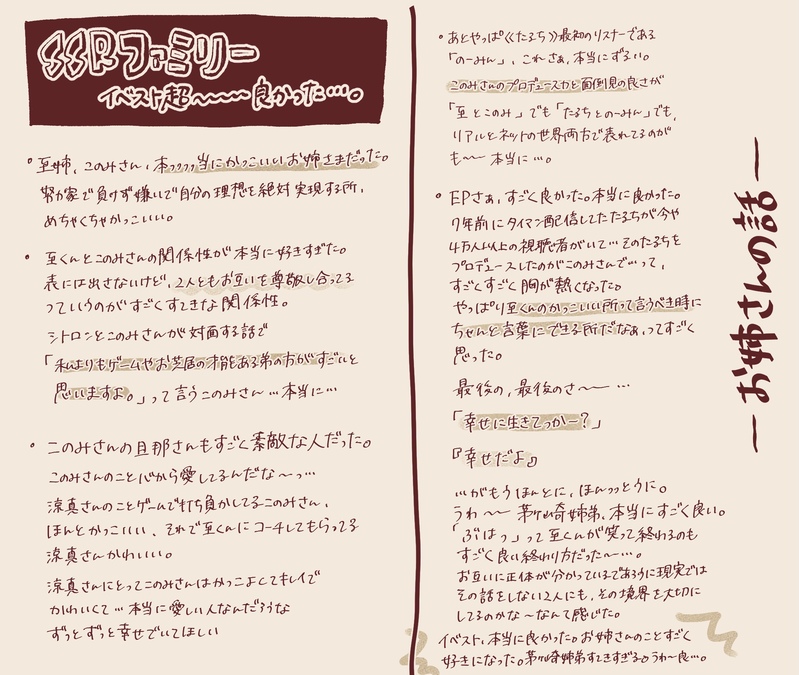 SSRファミリー
イベスト超〜〜〜良かった…。
・至姉、このみさん、本ッッッッ当にかっこいいお姉さまだった。
努力家で負けず嫌いで自分の理想を絶対実現する所、
めちゃくちゃかっこいい。
・至くんとこのみさんの関係性が本当に好きすぎた。
表には出さないけど、2人ともお互いを尊敬し合ってる
っていうのがすごくすてきな関係性。
シトロンとこのみさんが対面する話で
「私よりもゲームやお芝居の才能ある弟の方がすごいと
思いますよ。」って言うこのみさん…本当に…
・このみさんの旦那さんもすごく素敵な人だった。
このみさんのこと心から愛してるんだな〜っ…
涼真さんのことゲームで打ち負かしてるこのみさん、
ほんとかっこいい、それで至くんにコーチしてもらってる
涼真さんかわいい。
涼真さんにとってこのみさんはかっこよくてキレイで
かわいくて…本当に愛しい人なんだろうな
ずっとずっと幸せでいてほしい
・あとやっぱ《たるち》最初のリスナーである
「のーみん」、これさぁ、本当にずるい。
このみさんのプロデュース力と面倒見の良さが
「至とこのみ」でも「たるちとのーみん」でも、
リアルとネットの世界両方で表れてるのが
も〜本当に…。
・EPさぁ、すごく良かった。本当に良かった。
7年前にタイマン配信してたたるちが今や
4万人以上の視聴者がいて…そのたるちを
プロデュースしたのがこのみさんで…って、
すごくすごく胸が熱くなった。
やっぱり至くんのかっこいい所って言うべき時に
ちゃんと言葉にできる所だなぁ、ってすごく
思った。
最後の、最後のさ〜…
「幸せに生きてっかー？」
『幸せだよ』
…がもうほんとに、ほんっっとうに。
うわ〜茅ヶ崎姉弟、本当にすごく良い。
「ぶはっ」って至くんが笑って終わるのも
すごく良い終わり方だった〜…。
お互いに正体が分かっているであろうに現実では
その話をしない2人にも、その境界を大切に
してるのかな〜なんて感じた。
イベスト、本当に良かった。お姉さんのことすごく
好きになった。茅ヶ崎姉弟すてきすぎる。うわ〜良…。
―お姉さんの話―